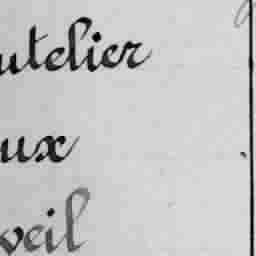 utelier
ux
veil